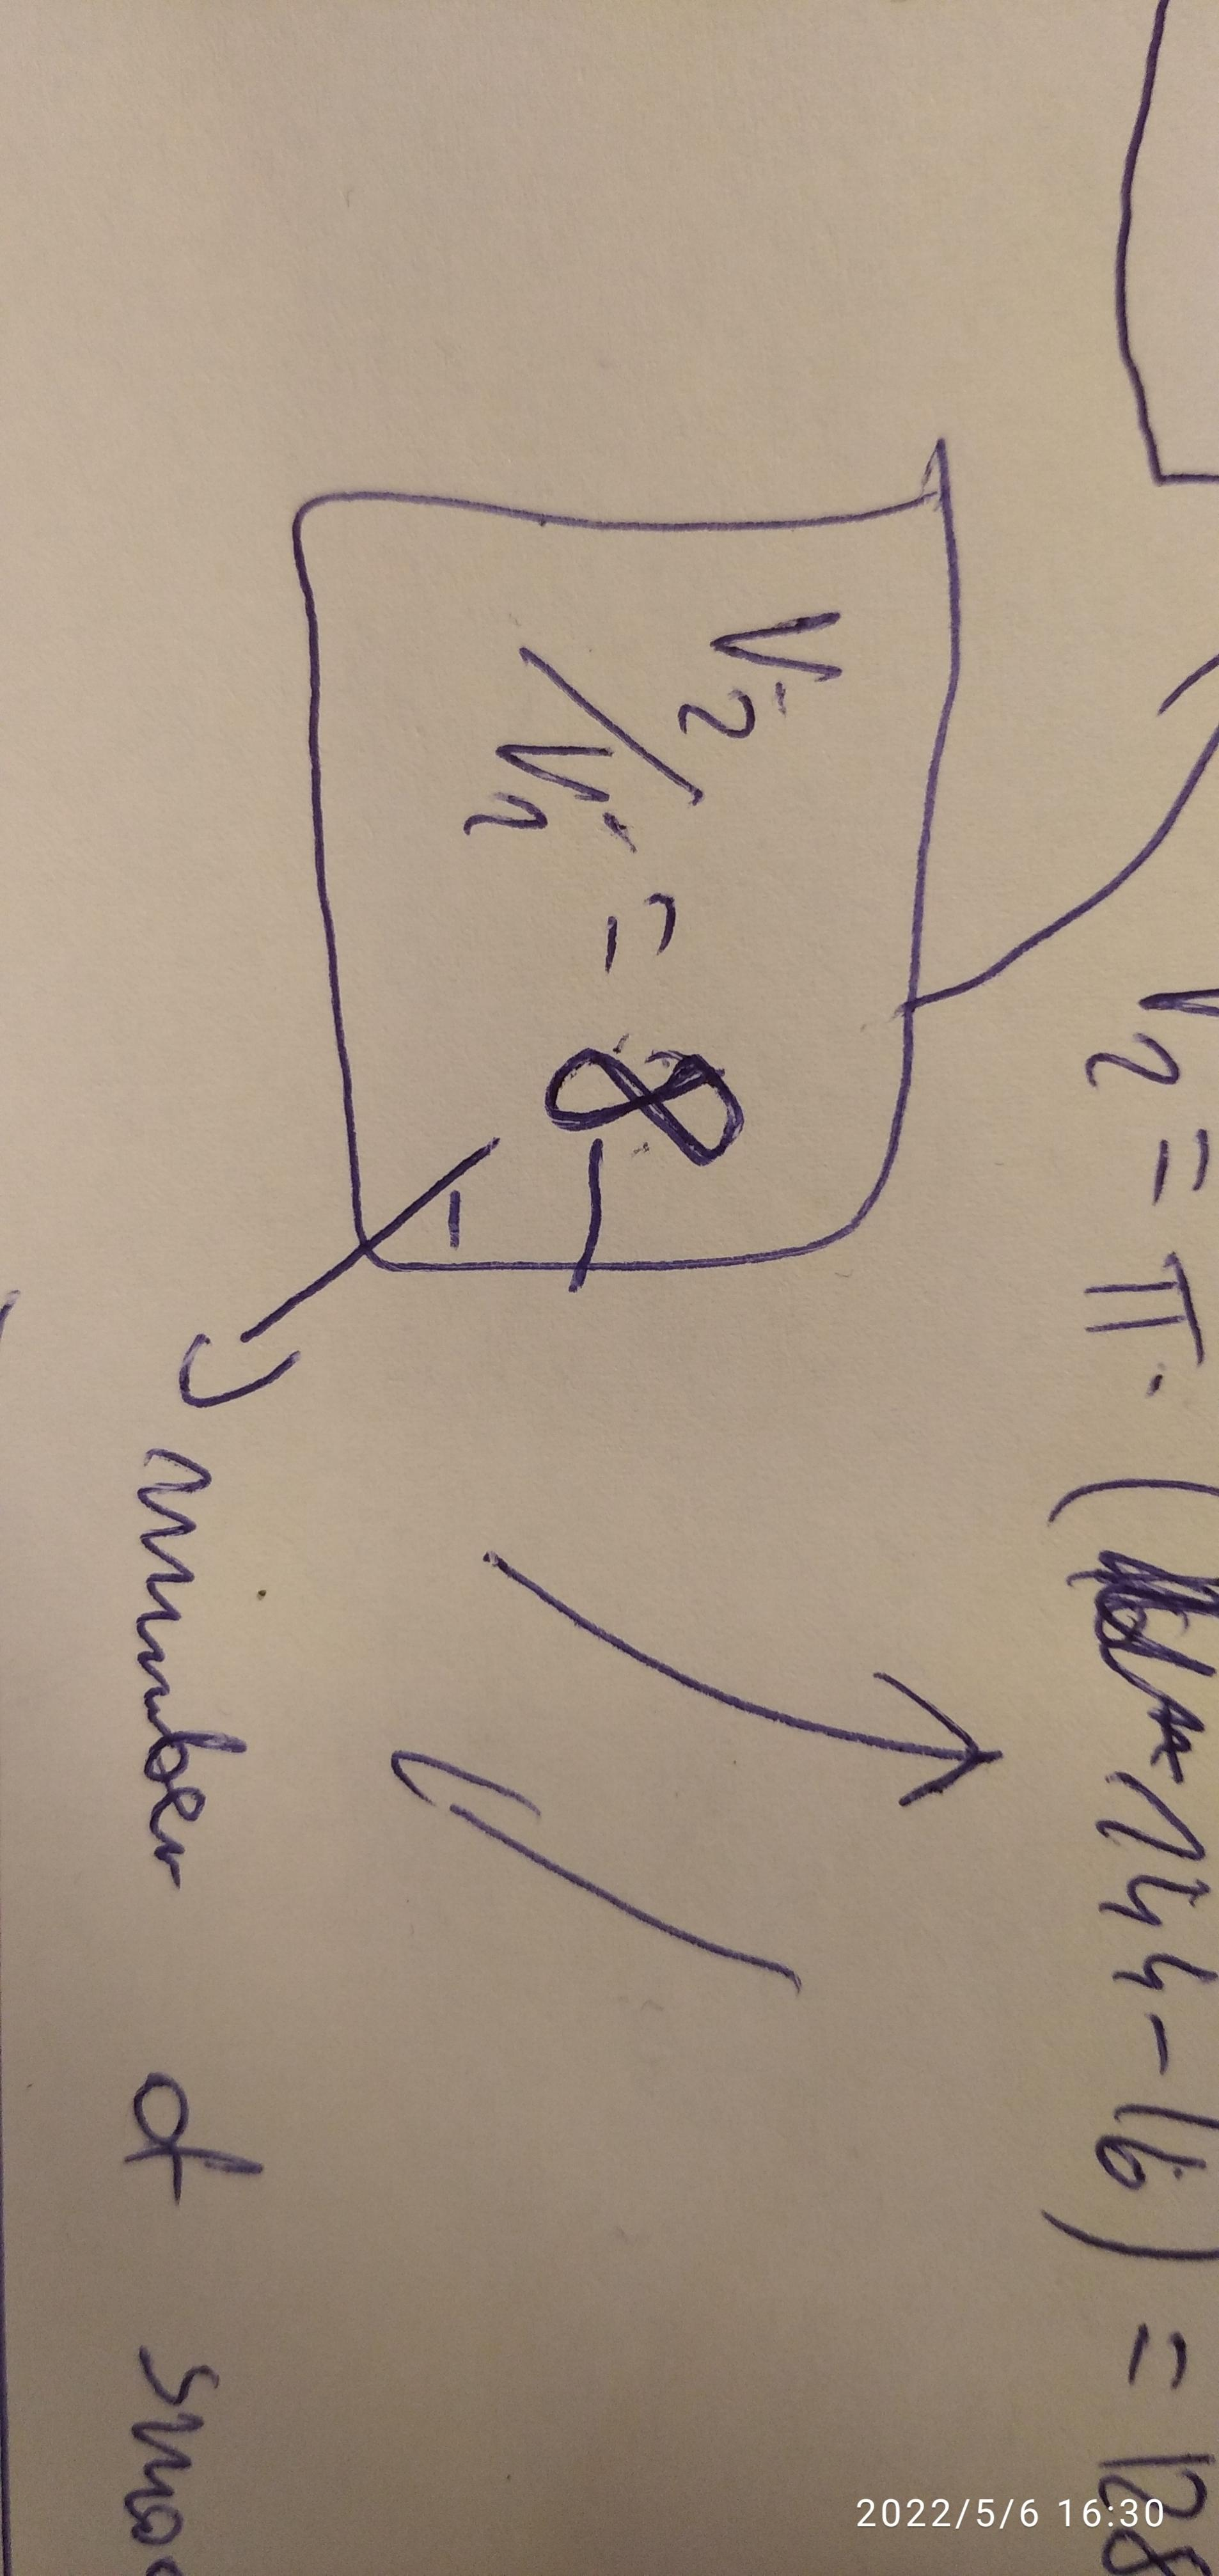 V2 = π · (144-16) = 128
V2/V1 = 8
number of
2022/5/6 16:30